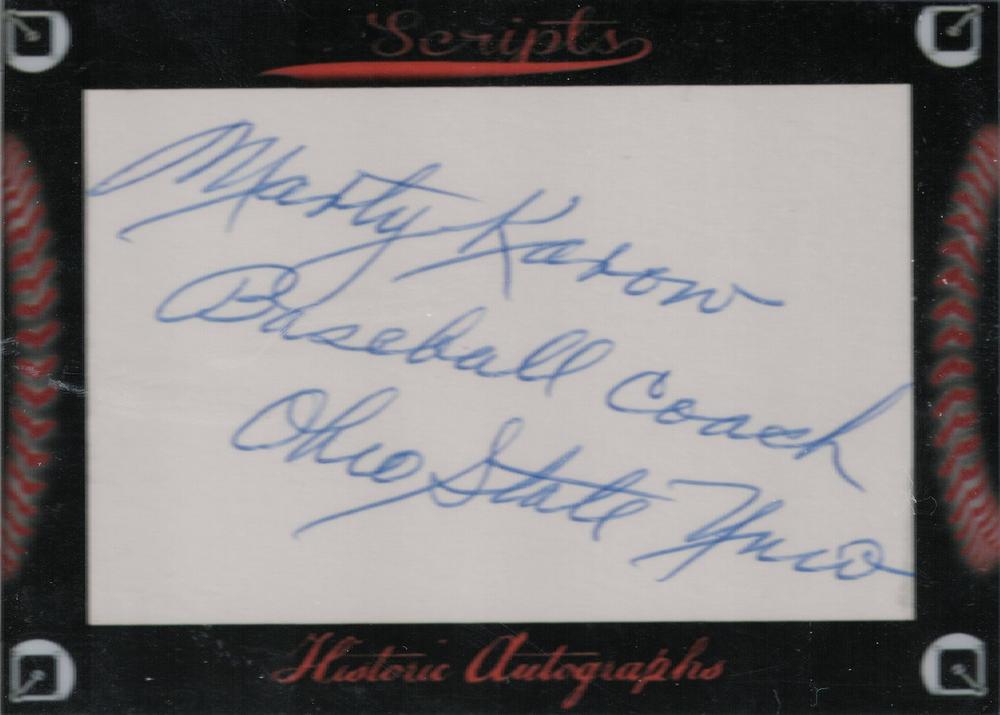 Scripts
Marty Karow
Baseball Coach
Ohio State Univ
Historic Autographs